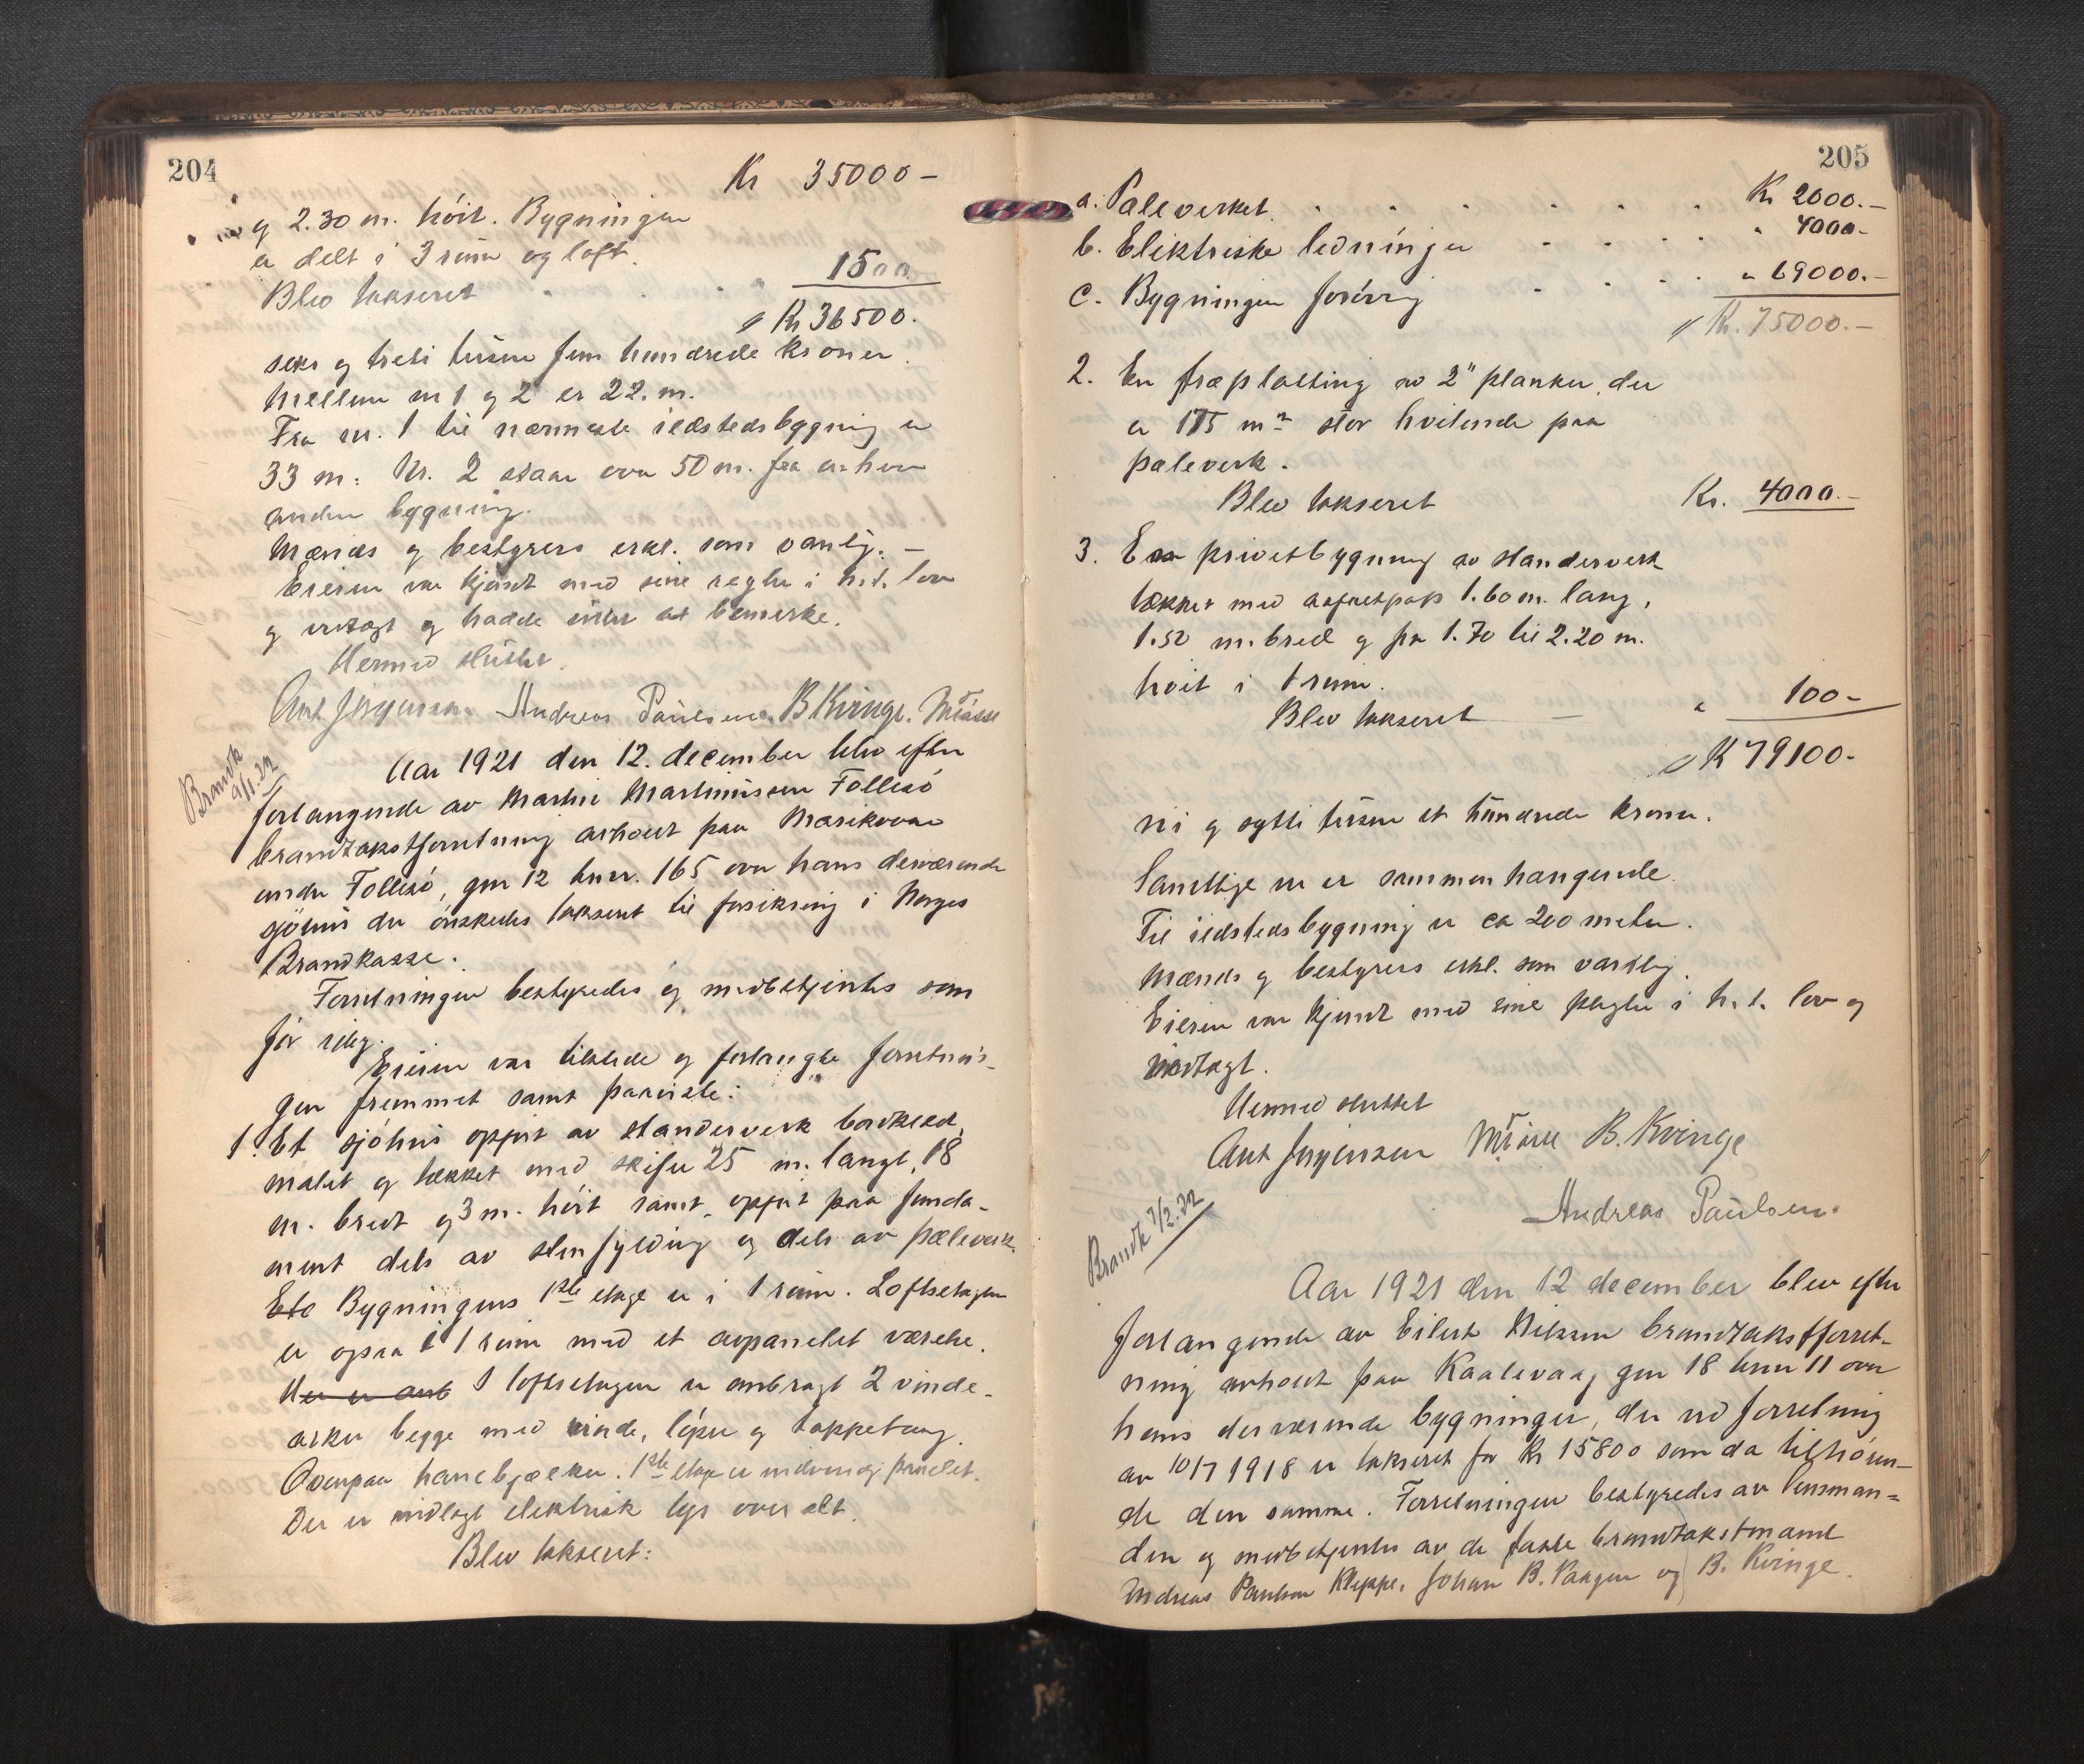 204
Kr 35000-
og 2.30 m. höit. Bygningen
er delt i 3 rum og loft.
Blev takseret " 1500
Kr 36500.
seks og treti tusen fem hundrede kroner.
Mellem nr 1 og 2 er 22. m.
Fra nr. 1 til nærmeste ildstedsbygning er
33 m. Nr. 2 staar over 50 m. fra enhver
anden bygning.
Mænds og bestyrers erkl. som vanlig. -
Eieren var kjendt med sine regler i h.t. lov
og vedtagt og hadde intet at bemerke.
Hermed sluttet.
Ant Jørgensen. Andreas Paulsen. B Kvinge. Mrásse
Brandk 9/1.22
Aar 1921 den 12. december blev efter
forlangende av Martin Martinussen Follesö
brandtakstforretning avholdt paa Marikoven
under Follesö, gnr 12 bnr. 165 over hans derværende
sjöhus der önskedes takseret til forsikring i Norges
Brandkasse.
Forretningen bestyredes og medbetjentes som
før idag.
Eieren var tilstede og forlangte forretnin-
gen fremmet samt paaviste:
1. Et sjöhus opført av standerverk bordklæd,
malet og tækket med skifer 25 m. langt, 18
m. bredt og 3 m. höit samt opført paa funda-
ment dels av stenfylding og dels av pæleverk.
Ete Bygningens 1ste etage er i 1 rum. Loftsetagen
er ogsaa i 1 rum med et avpanelet værelse.
Her er anb I loftsetagen er anbragt 2 vinde-
arker begge med vinde, löper og tappetaug.
Ovenpaa hanebjælker. 1ste etage er indvendig panelet.
Der er indlagt elektrisk lys over alt.
Blev takseret:
205
a. Paleverket. Kr 2000.-
b. Elektriske ledninger " 4000-
c. Bygningen forövrig " 69000.-
Kr. 75000.-
2. En træplatting av 2" planker, der
er 175 m² stor hvilende paa
pæleverk.
Blev takseret Kr. 4000.-
3. En privetbygning av standerverk
tækket med asfaltpap 1.60 m. lang,
1.50 m. bred og fra 1.70 til 2.20 m.
höit i 1 rum.
Blev takseret - " 100-
K 79100.-
ni og sytti tusen et hundrede kroner.
Samtlige nr er sammenhængende.
Til ildstedsbygning er ca 200 meter.
Mænds og bestyrers erkl. som vanlig.
Eieren var kjendt med sine plegter i h.t. lov og
vedtagt.
Hermed sluttet
Ant Jørgensen Mrásse B. Kvinge
Andreas Paulsen.
Brandk 7/2.22
Aar 1921 den 12 december blev efter
forlangende av Eilert Nilssen brandtakstforret-
ning avholdt paa Kaalevaag gnr 18 bnr 11 over
hans derværende bygninger, der ved forretning
av 10/7 1918 er takseret for Kr 15800 som da tilhören-
de den samme. Forretningen bestyredes av lensman-
den og medbetjentes av de faste brandtakstmænd
Andreas Paulsen Kleppe, Johan B. Vaagen og B. Kvinge.